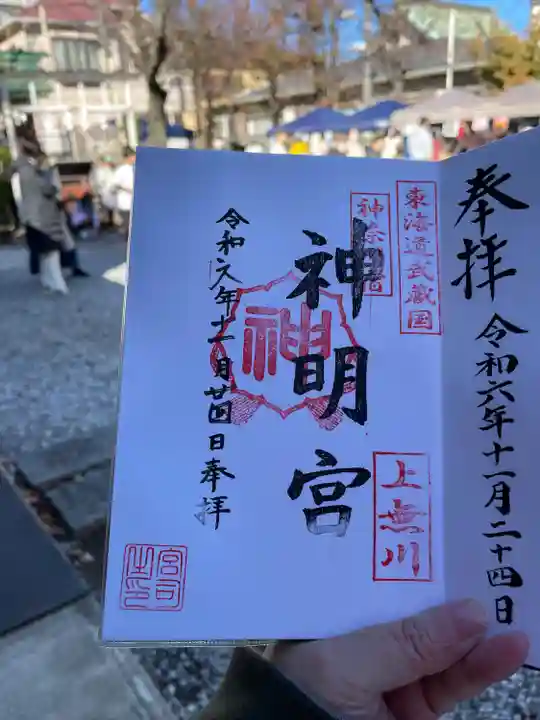 奉拝
令和六年十一月二十四日
東海道武蔵国
神奈川宿
上無川
神明宮
神
令和六年十一月廿四日奉拝
宮司之印